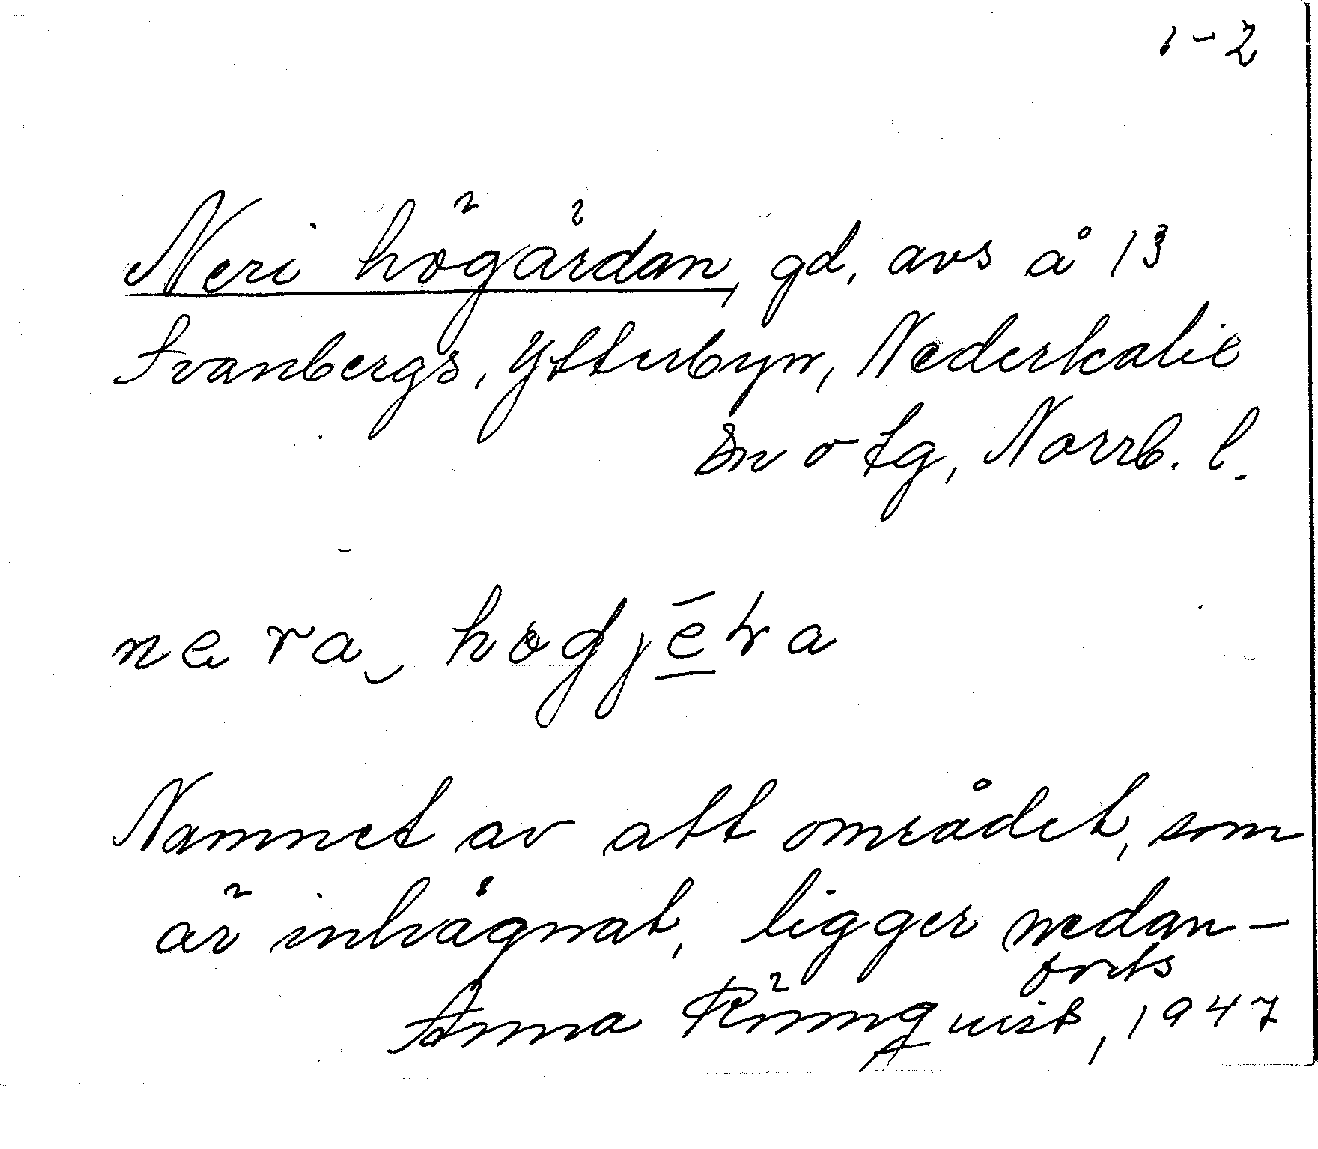 1-2
Neri högärdan, gd, avs å 13
Svanbergs, Ytterbyn, Nederkalix
sn o tg, Norrb. l.
nera hogjētra
Namnet av att området, som
är inhägnat, ligger nedan-
forts
Anna Rönnquist, 1947